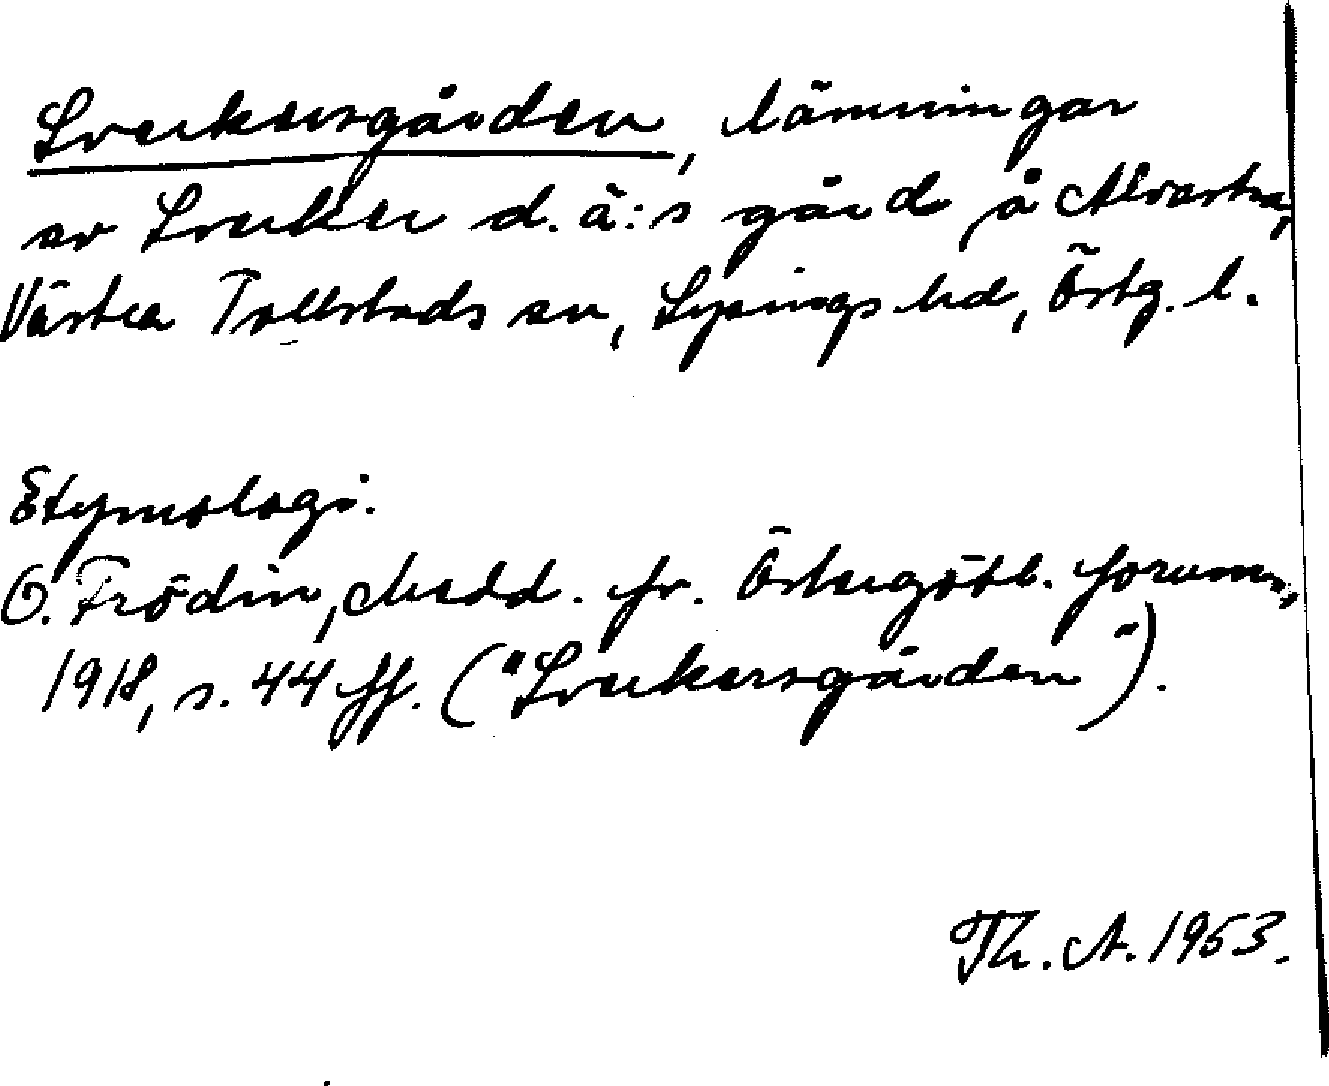 Sverkersgården, lämningar
av Sverker d.ä:s gård å Alvastra,
Västra Tollstads sn, Lysings hd, Östg. l.
Etymologi.
O. Frödin, Medd. fr. Östergötl. fornm.,
1918, s. 44 ff. ("Sverkersgården").
Th. A. 1953.